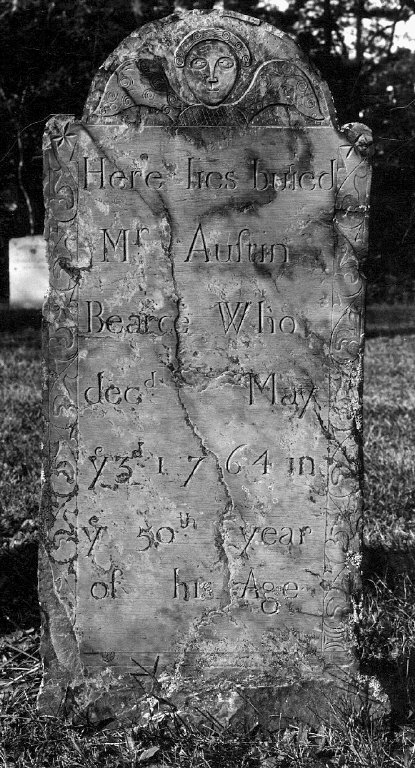 Here lies buied
Mʳ Auſtin
Bearce Who
decᵈ May
yͤ 3ᵈ 1764 in
yͤ 50ᵗʰ year
of his Age